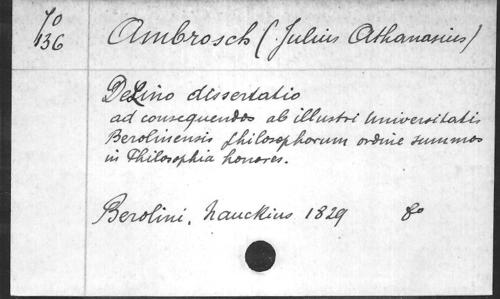 Yo
136
Ambrosch (Julius Athanasius)
De Lino dissertatio
ad consequendos ab illustri Universitatis
Berolinensis philosophorum ordine summos
in Philosophia honores.
Berolini, Nauckius 1829 8o